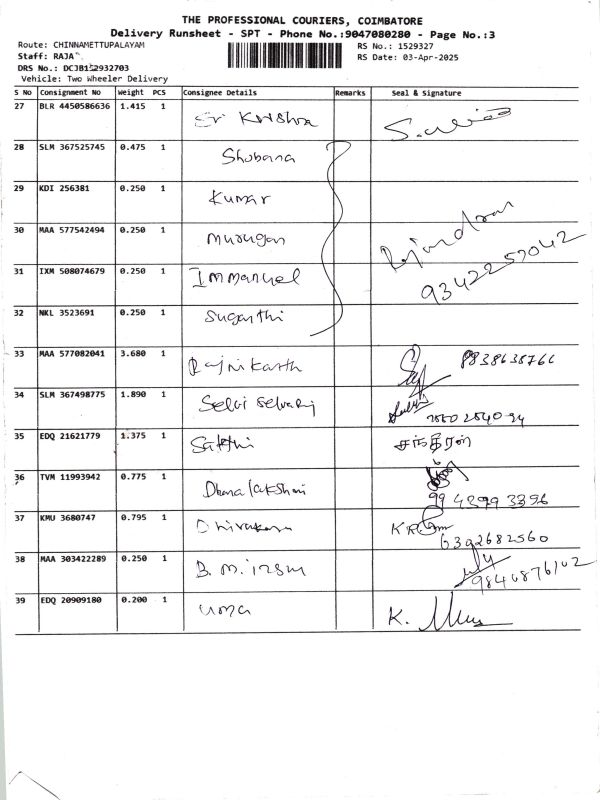 THE PROFESSIONAL COURIERS, COIMBATORE
Delivery Runsheet - SPT - Phone No.:9047080280 - Page No.:3
Route: CHINNAMETTUPALAYAM RS No.: 1529327
Staff: RAJA RS Date: 03-Apr-2025
DRS No.: DCJB152932703
Vehicle: Two Wheeler Delivery
S No Consignment No Weight PCS Consignee Details Remarks Seal & Signature
27 BLR 4450586636 1.415 1 Sri Krishna
28 SLM 367525745 0.475 1 Shobana
29 KDI 256381 0.250 1 Kumar
30 MAA 577542494 0.250 1 Murugan Rajendran
31 IXM 508074679 0.250 1 Immanuel 9342257042
32 NKL 3523691 0.250 1 Suganthi
33 MAA 577082041 3.680 1 Rajnikanth 8838638766
34 SLM 367498775 1.890 1 Selvi Selvaraj
35 EDQ 21621779 1.375 1 Sakthi
36 TVM 11993942 0.775 1 Dhanalakshmi 9943993396
37 KMU 3680747 0.795 1 Dhivakaran 6392682560
38 MAA 303422289 0.250 1
39 EDQ 20909180 0.200 1 uma K.